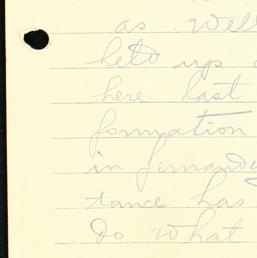 as well
held up
here last
formation
in
tance has
do what